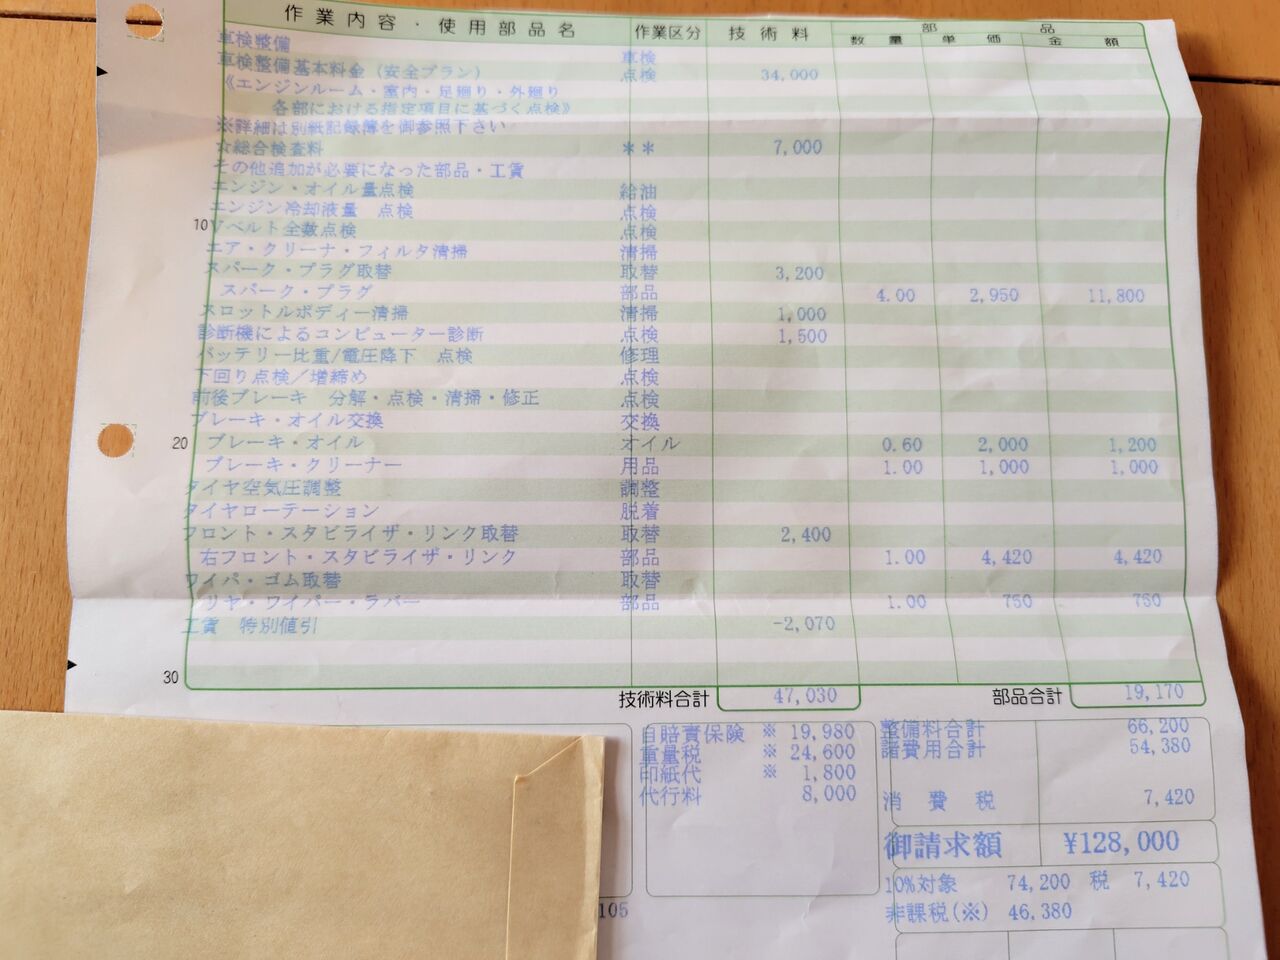 作業内容・使用部品名 作業区分 技術料 部品
数量 単価 金額
車検整備 車検
車検整備基本料金(安全プラン) 点検 34,000
《エンジンルーム・室内・足廻り・外廻り
各部における指定項目に基づく点検》
※詳細は別紙記録簿を御参照下さい
☆総合検査料 ** 7,000
その他追加が必要になった部品・工賃
エンジン・オイル量点検 給油
エンジン冷却液量 点検 点検
10 Vベルト全数点検 点検
エア・クリーナ・フィルタ清掃 清掃
スパーク・プラグ取替 取替 3,200
スパーク・プラグ 部品 4.00 2,950 11,800
スロットルボディー清掃 清掃 1,000
診断機によるコンピューター診断 点検 1,500
バッテリー比重/電圧降下 点検 修理
下回り点検/増締め 点検
前後ブレーキ 分解・点検・清掃・修正 点検
ブレーキ・オイル交換 交換
20 ブレーキ・オイル オイル 0.60 2,000 1,200
ブレーキ・クリーナー 用品 1.00 1,000 1,000
タイヤ空気圧調整 調整
タイヤローテーション 脱着
フロント・スタビライザ・リンク取替 取替 2,400
右フロント・スタビライザ・リンク 部品 1.00 4,420 4,420
ワイパ・ゴム取替 取替
リヤ・ワイパー・ラバー 部品 1.00 750 750
工賃 特別値引 -2,070
30
技術料合計 47,030 部品合計 19,170
自賠責保険 ※ 19,980 整備料合計 66,200
重量税 ※ 24,600 諸費用合計 54,380
印紙代 ※ 1,800
代行料 8,000 消費税 7,420
御請求額 ¥128,000
10%対象 74,200 税 7,420
非課税(※) 46,380
105